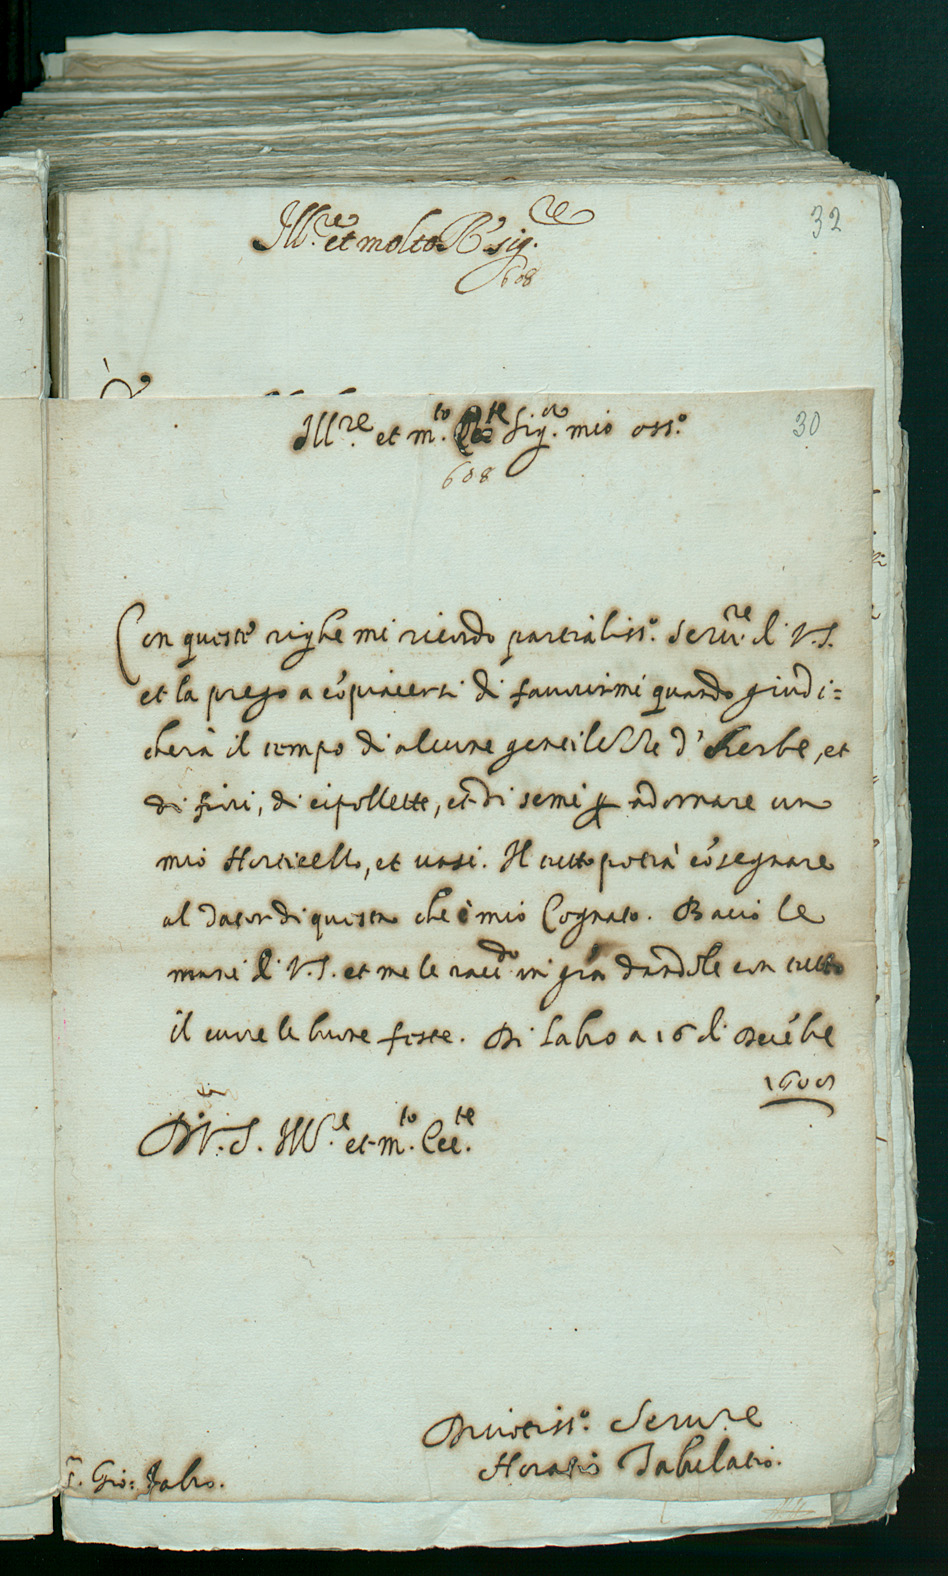 Ill.re et molto R. sig.re
32
608
Ill.re et m.to Sig.r mio oss.o
30
608
Con queste righe mi ricordo partialiss.o Seru.re di V.S.
et la prego a cõpiacersi di fauorirmi quando giudi=
cherà il tempo di alcune gentilezze d'Herbe, et
di fiori, di cipollette, et di semi ꝑ adornare un
mio Horticello, et uasi. Il tutto potrà cõsegnare
al dator di questa che è mio Cognato. Bacio le
mani di V.S. et me le racc.do in grã dandole con tutto
il cuore le buone feste. Di a 16 di Decẽbe
Di V.S. Ill.e et m.to Ecc.te
Deuotiss.o Seru.re
Horatio
S. Gio: Fabro.